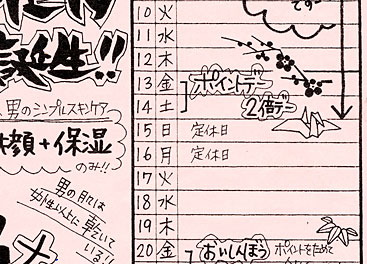 誕生!!
男のシンプルスキンケア
顔+保湿
のみ!!
男の肌は
女性以上に乾いて
いる!!
です
10 火
11 水
12 木
13 金 ポイントデー
14 土 2倍デー
15 日 定休日
16 月 定休日
17 火
18 水
19 木
20 金 おいしんぼう ポイントをためて